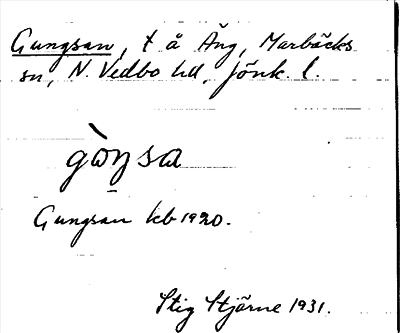 Gungsan, t å Äng, Marbäcks
sn, N. Vedbo hd, Jönk. l.
gòŋsa
Gungsan kb 1920.
Stig Stjärne 1931.